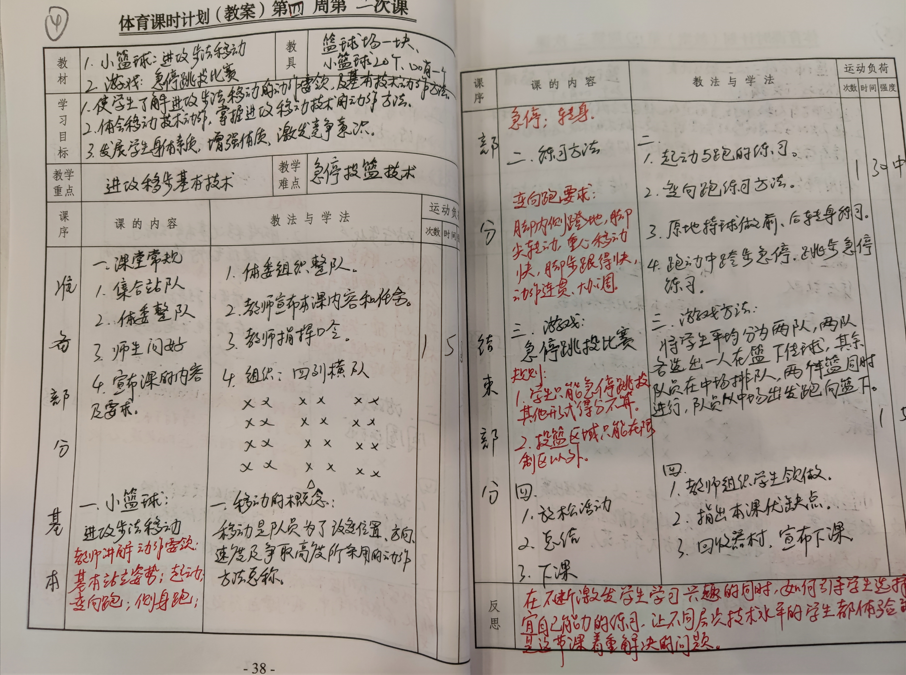 ④
体育课时计划(教案)第四 周第 二次课
教材
1. 小篮球: 进攻步法移动
2. 游戏: 急停跳投比赛
教具
篮球场一块、
小篮球20个、
学习目标
1. 使学生了解进攻步法移动的动作要领,及基本技术动作方法。
2. 体会移动技术动作, 掌握进攻移动技术的动作方法。
3. 发展学生身体素质, 增强体质, 激发竞争意识。
教学重点
进攻移步基本技术
教学难点
急停投篮技术
课序
课 的 内 容
教 法 与 学 法
运动负
次数 时间
准备部分
一. 课堂常规
1. 集合站队
2. 体委整队
3. 师生问好
4. 宣布课的内容
及要求。
1. 体委组织整队。
2. 教师宣布本课内容和任务。
3. 教师指挥口令。
4. 组织: 四列横队
×× ×× ××
×× ×× ××
×× ×× ××
×× ×× ××
△
1 5
基本
一. 小篮球:
进攻步法移动
教师讲解动作要领:
基本站立姿势; 起动;
变向跑; 侧身跑;
一. 移动的概念:
移动是队员为了改变位置、方向、
速度及争取高度所采用的动作
方法总称。
- 38 -
课序
课 的 内 容
教 法 与 学 法
运动负荷
次数 时间 强度
部分
急停; 转身.
二. 练习方法
变向跑要求:
脚内侧蹬地, 脚
尖转动, 重心移动
快, 脚步跟得快,
动作连贯、协调。
二.
1. 起动与跑的练习。
2. 变向跑练习方法。
3. 原地持球做前、后转身练习。
4. 跑动中跨步急停、跳步急停
练习。
1 30 中
结束部分
三. 游戏:
急停跳投比赛
规则:
1. 学生只能急停跳投
其他形式得分不算。
2. 投篮区域只能在限
制区以外。
二. 游戏方法:
将学生平均分为两队, 两队
各选出一人在篮下传球, 其余
队员在中场排队, 两个半篮同时
进行, 队员从中场出发跑向篮下。
1 5
四.
1. 放松活动
2. 总结
3. 下课
四.
1. 教师组织学生领做。
2. 指出本课优缺点。
3. 回收器材, 宣布下课
反思
在不断激发学生学习兴趣的同时, 如何引导学生选择
宜自己能力的练习, 让不同层次技术水平的学生都体验
是这节课着重解决的问题。